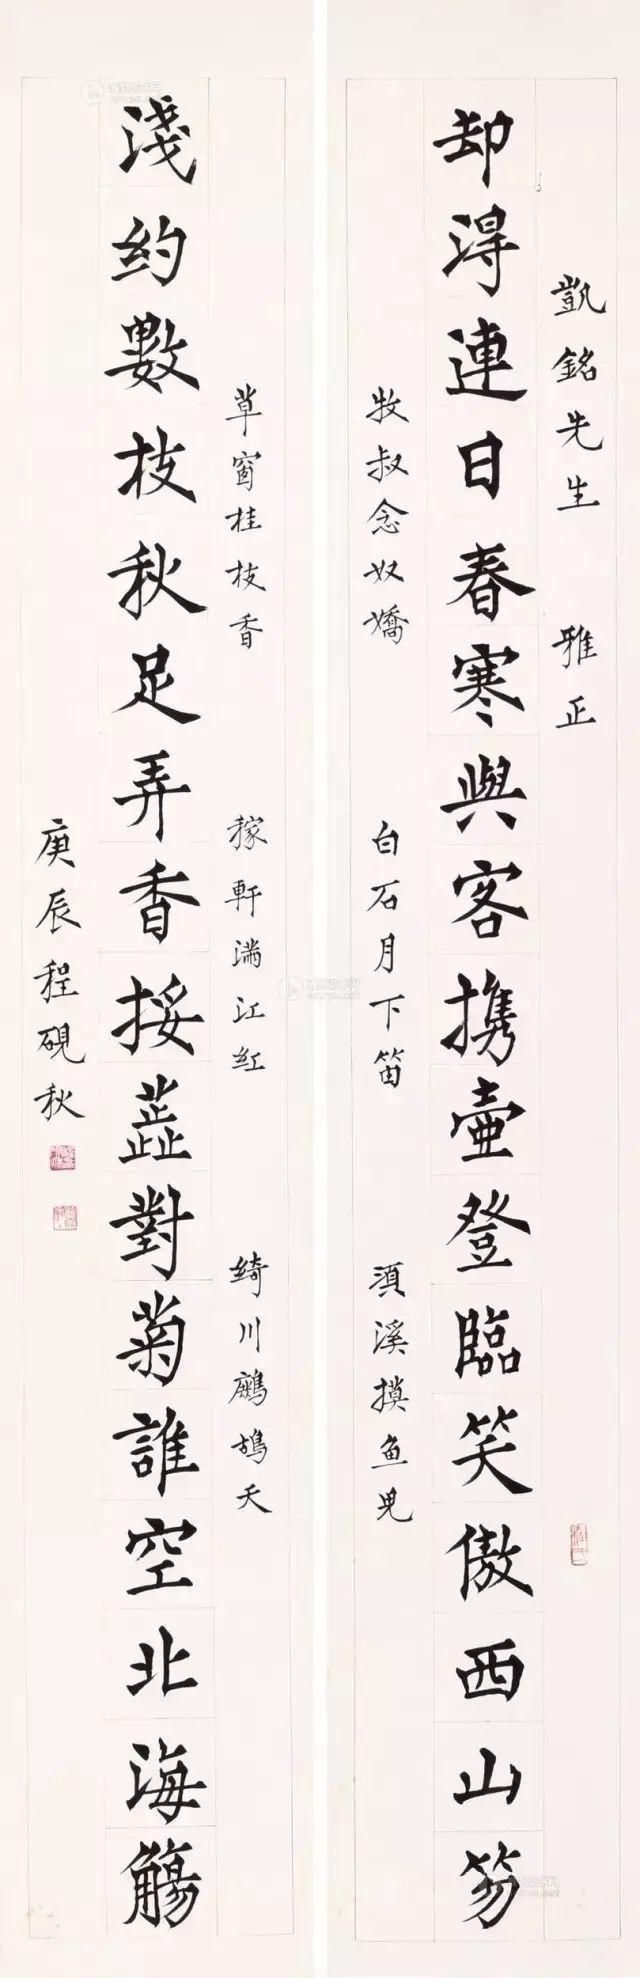 凱銘先生 雅正
却得連日春寒與客携壺登臨笑傲西山笏
牧叔念奴嬌 白石月下笛 須溪摸魚兒
草窗桂枝香 稼軒滿江紅 綺川鷓鴣天
淺約數枝秋足弄香挼蕋對菊誰空北海觴
庚辰程硯秋